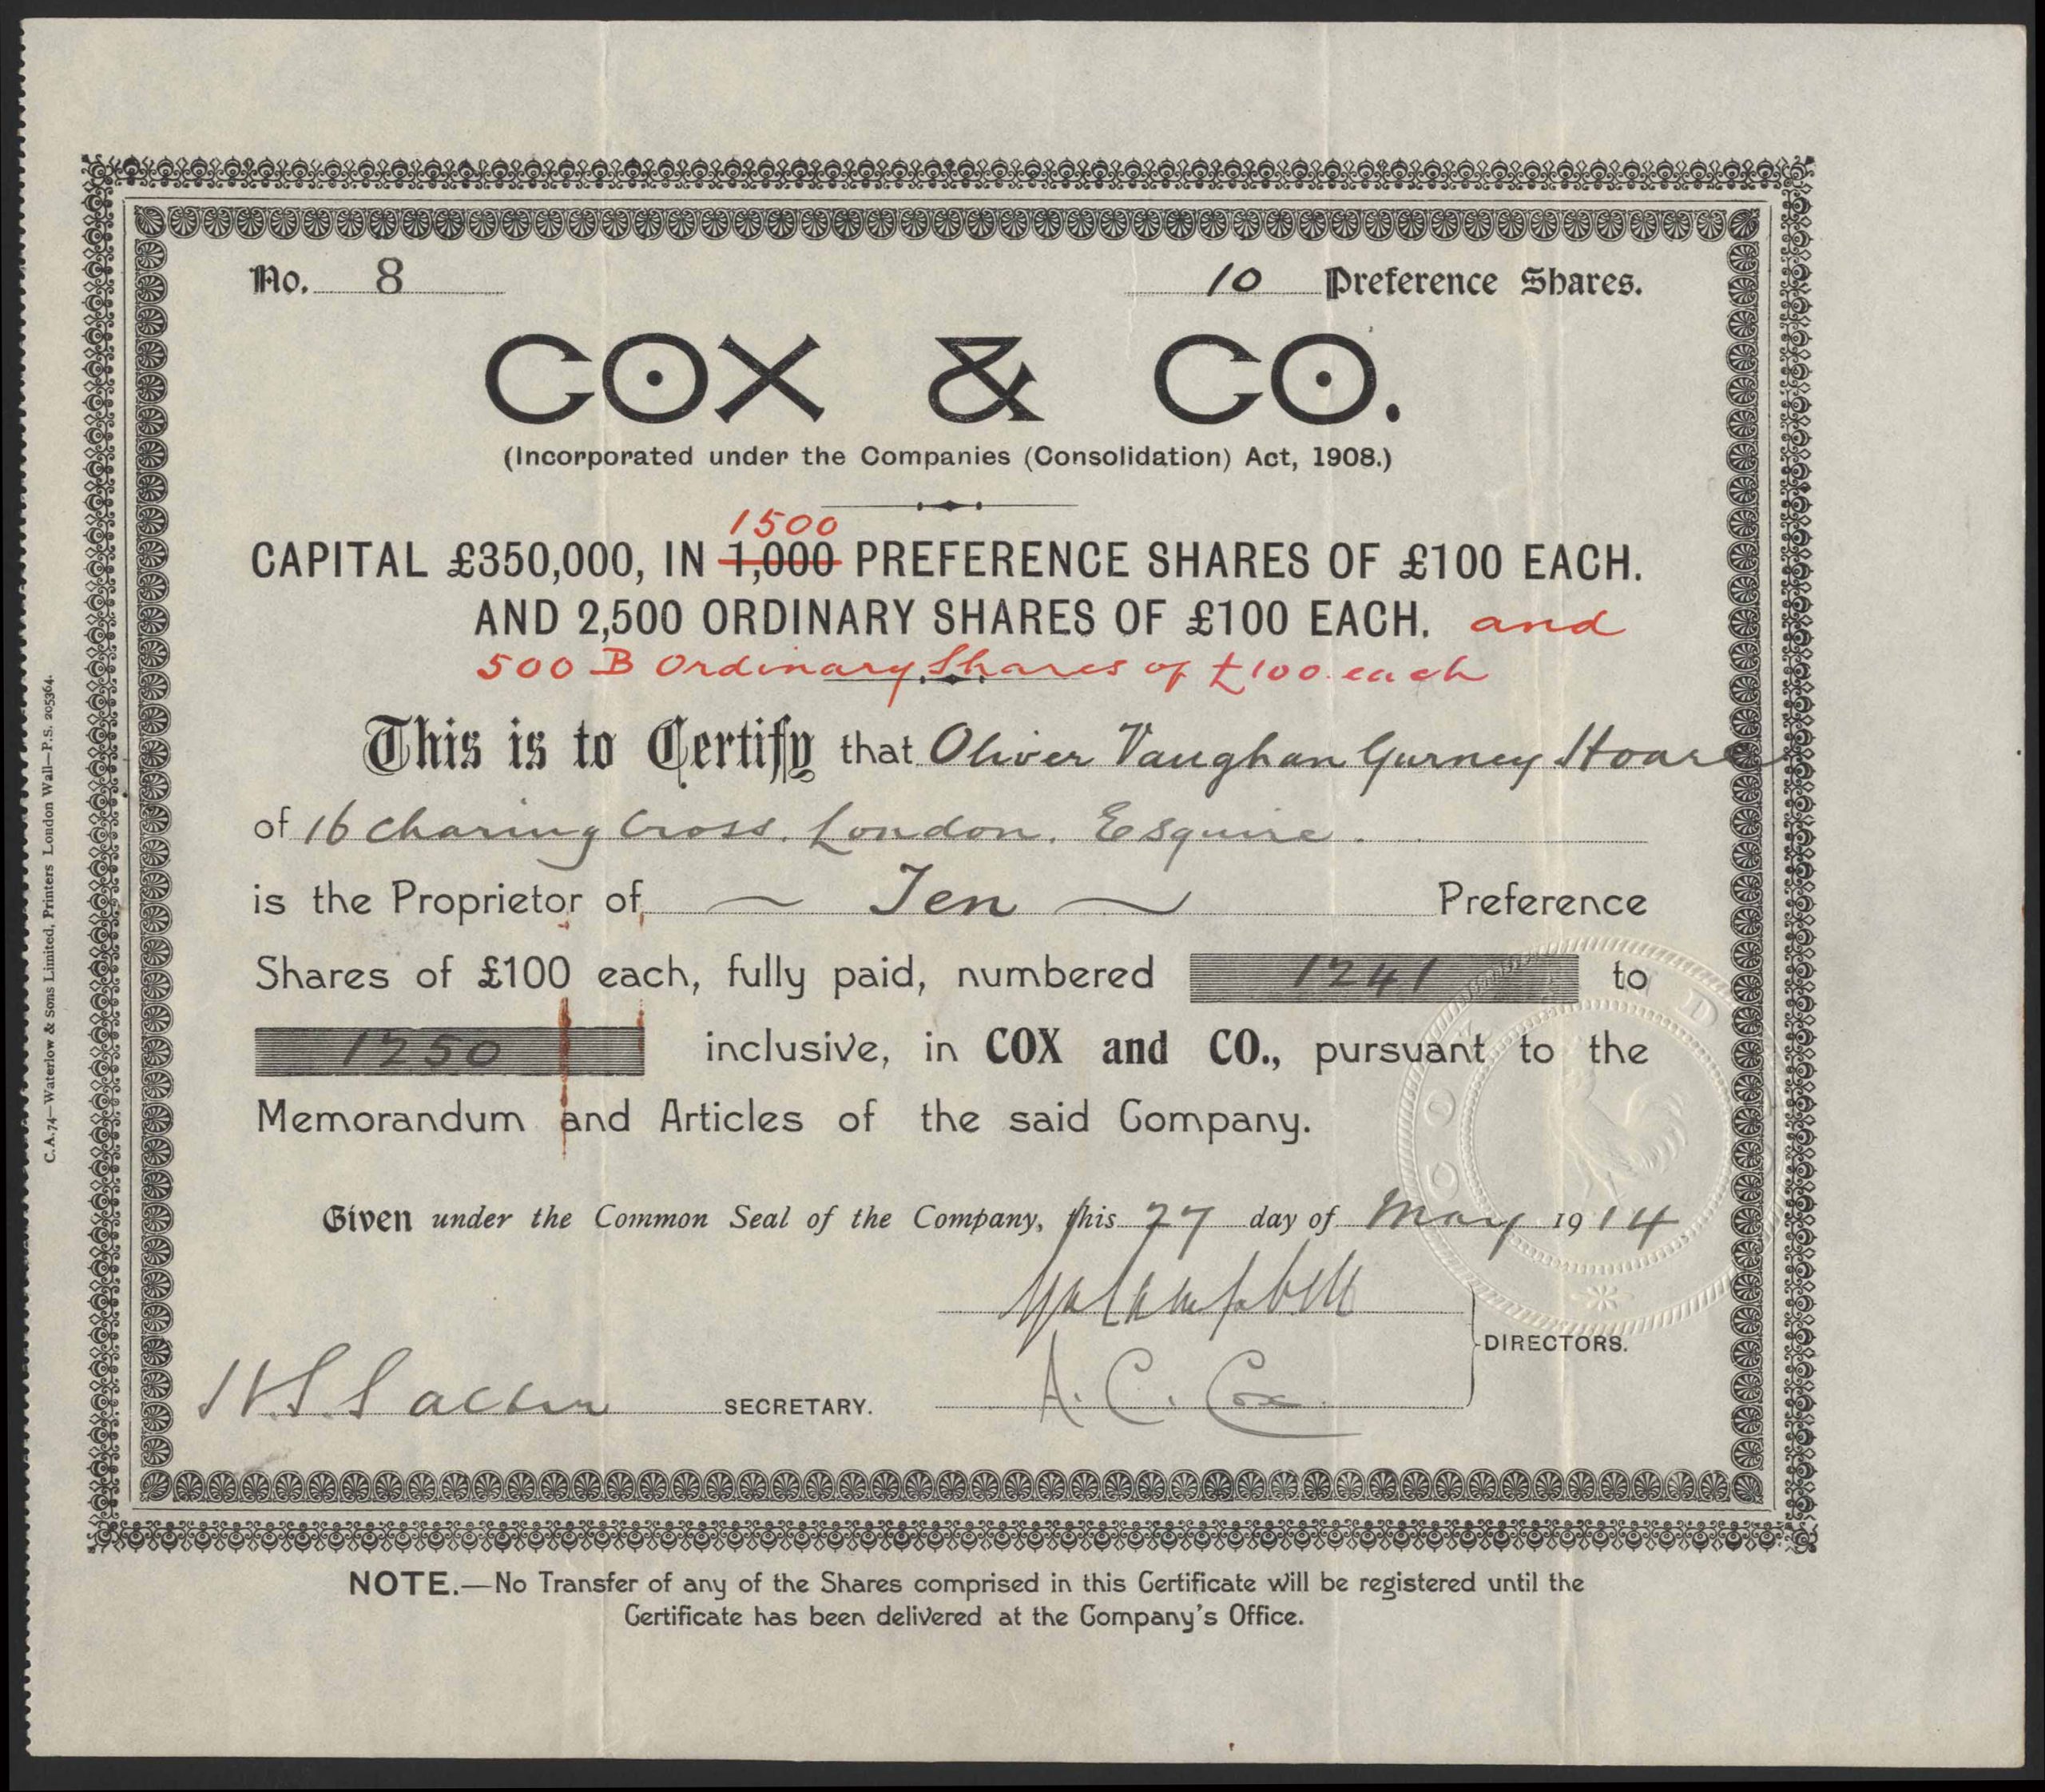 No. 8 10 Preference Shares.
COX & CO.
(Incorporated under the Companies (Consolidation) Act, 1908.)
1500
CAPITAL £350,000, IN 1,000 PREFERENCE SHARES OF £100 EACH.
AND 2,500 ORDINARY SHARES OF £100 EACH. and
500 B Ordinary Shares of £100 each
This is to Certify that Oliver Vaughan Gurney Hoare
of 16 Charing Cross. London. Esquire.
is the Proprietor of ~ Ten ~ Preference
Shares of £100 each, fully paid, numbered 1241 to
1250 inclusive, in COX and CO., pursuant to the
Memorandum and Articles of the said Company.
Given under the Common Seal of the Company, this 27 day of May 1914
Campbell
DIRECTORS.
A. C. Cox
SECRETARY.
NOTE.—No Transfer of any of the Shares comprised in this Certificate will be registered until the
Certificate has been delivered at the Company's Office.
C.A. 74—Waterlow & Sons Limited, Printers London Wall—P.S. 205364.